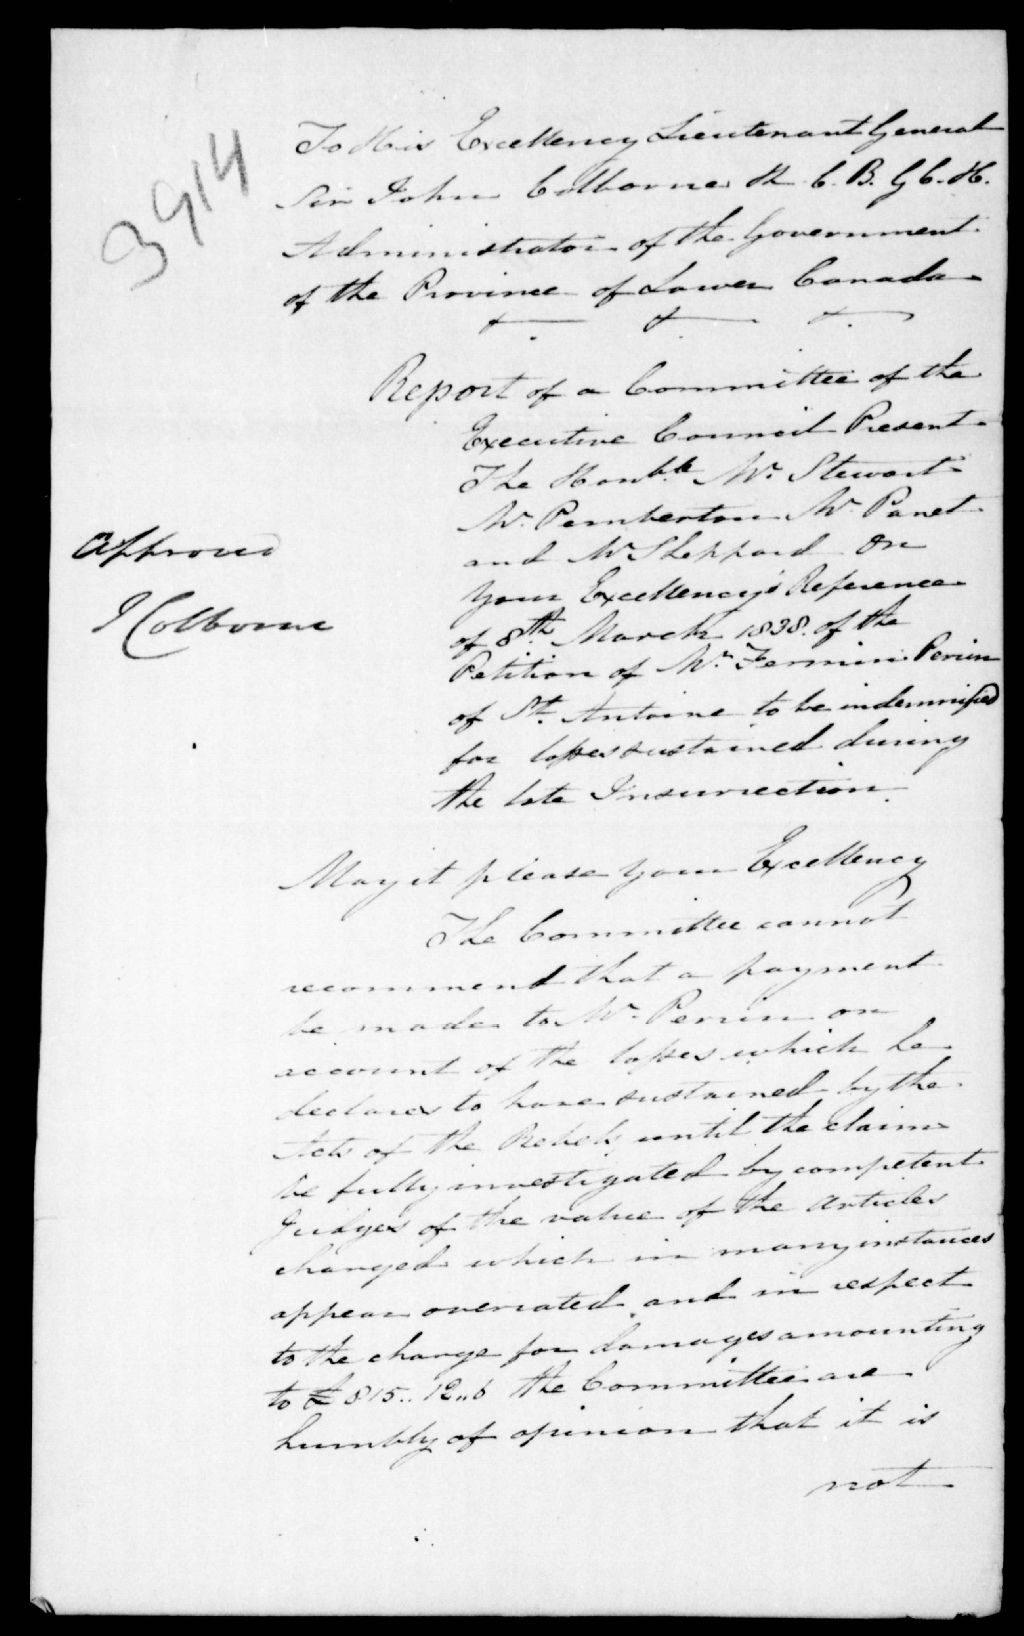 3914
To His Excellency Lieutenant General
Sir John Colborne K. C. B. G C. H.
Administrator of the Government
of the Province of Lower Canada
Report of a Committee of the
Executive Council Present
The Honble Mr. Stewart
Mr. Pemberton Mr. Panet
and Mr. Sheppard On
Your Excellency's Reference
of 8th March 1838. of the
Petition of Mr. Fermin Perrin
of St. Antoine to be indemnified
for losses sustained during
the late Insurrection.
Approved
J Colborne
May it please your Excellency
The Committee cannot
recommend that a payment
be made to Mr. Perrin on
account of the losses which he
declares to have sustained by the
Acts of the Rebels until the claim
be fully investigated by competent
Judges of the value of the articles
charged which in many instances
appear overrated and in respect
to the charge for damages amounting
to £ 815.. 12.. 6 the Committee are
humbly of opinion that it is
not